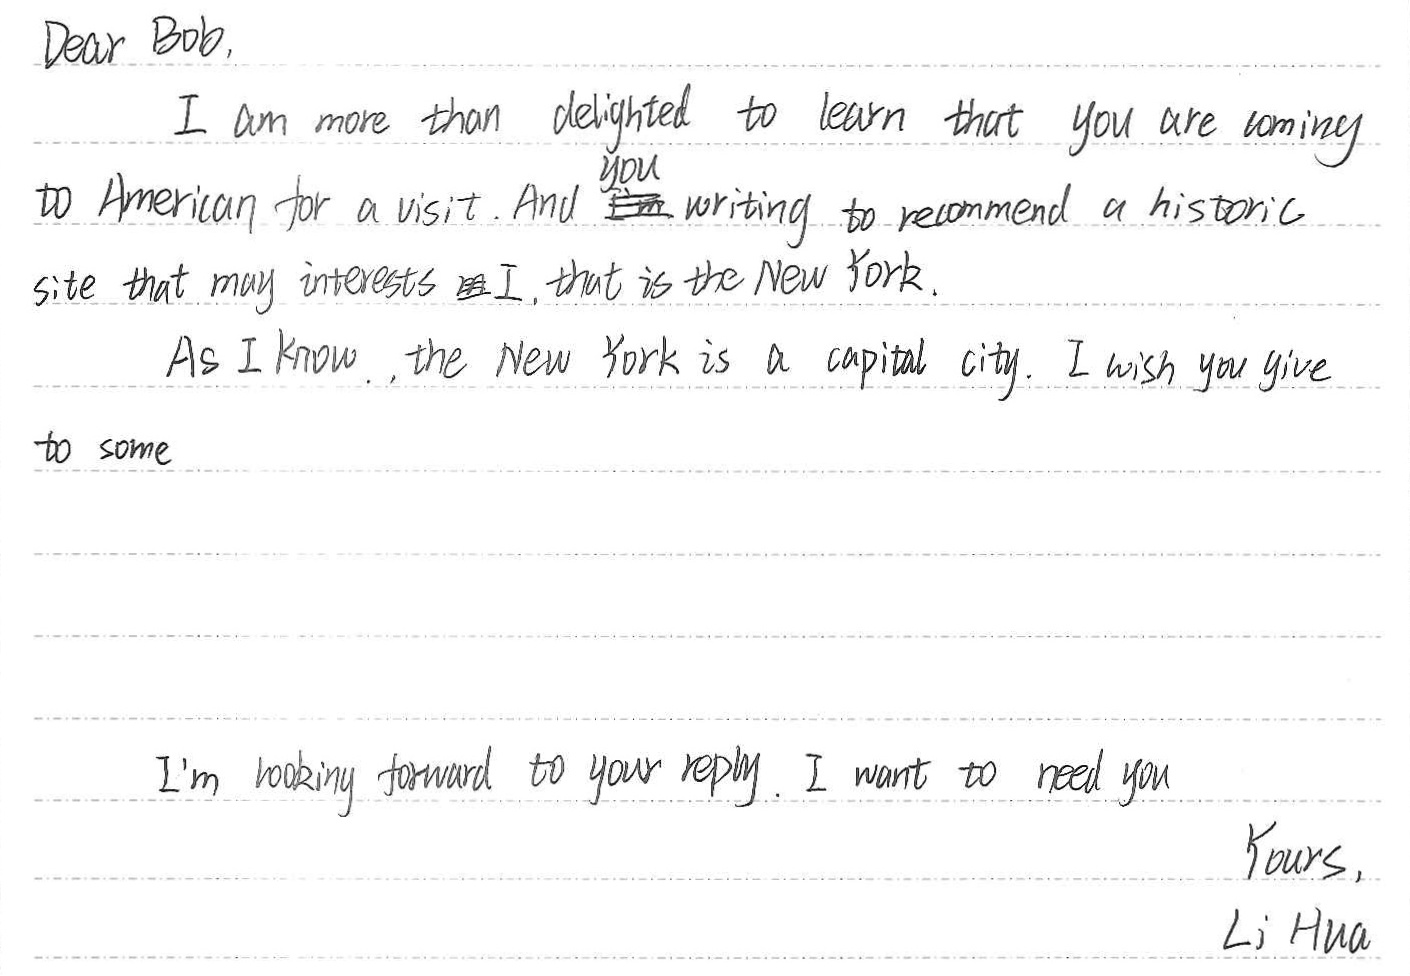 Dear Bob,
I am more than delighted to learn that you are coming
you
to American for a visit. And writing to recommend a historic
site that may interests I, that is the New York.
As I know ., the New York is a capital city. I wish you give
to some
I'm looking forward to your reply. I want to need you
Yours,
Li Hua